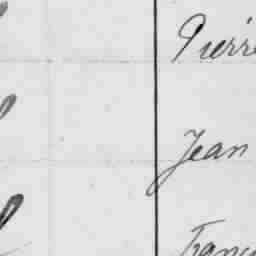 Pierre
Jean
Franç